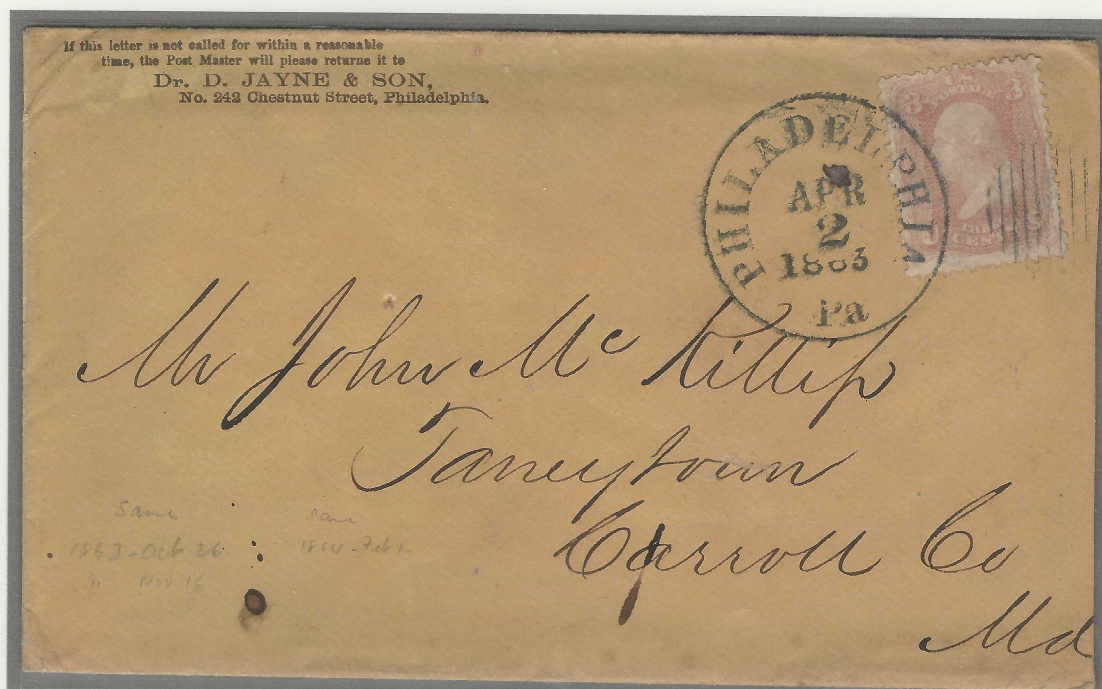 If this letter is not called for within a reasonable
time, the Post Master will please returne it to
Dr. D. JAYNE & SON,
No. 242 Chestnut Street, Philadelphia.
3 U.S. 3
CENTS
PHILADELPHIA
APR
2
1863
Pa
Mr John McKillip
Taneytown
Carroll Co
Md
Same
1863-Oct 26
" Nov 16
Same
1864-Feb 1